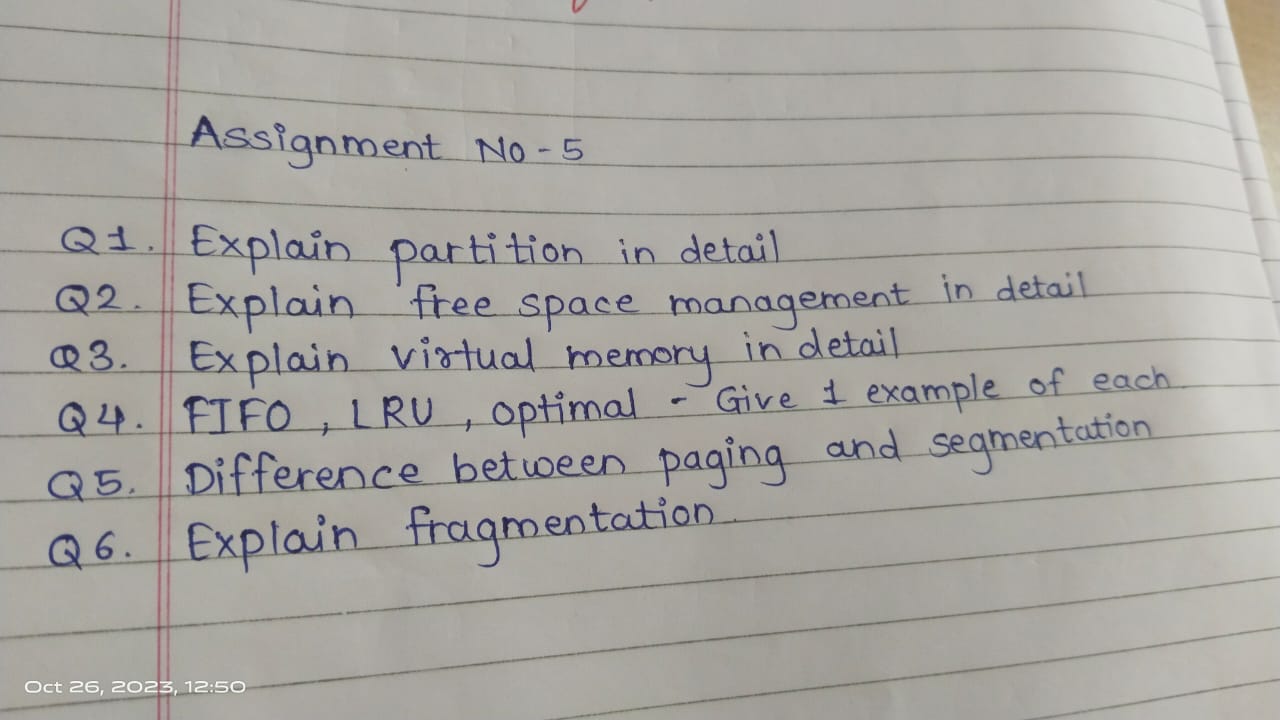 Assignment No - 5
Q1. Explain partition in detail
Q2. Explain free space management in detail
Q3. Explain virtual memory in detail
Q4. FIFO, LRU, optimal - Give 1 example of each
Q5. Difference between paging and segmentation
Q6. Explain fragmentation.
Oct 26, 2023, 12:50